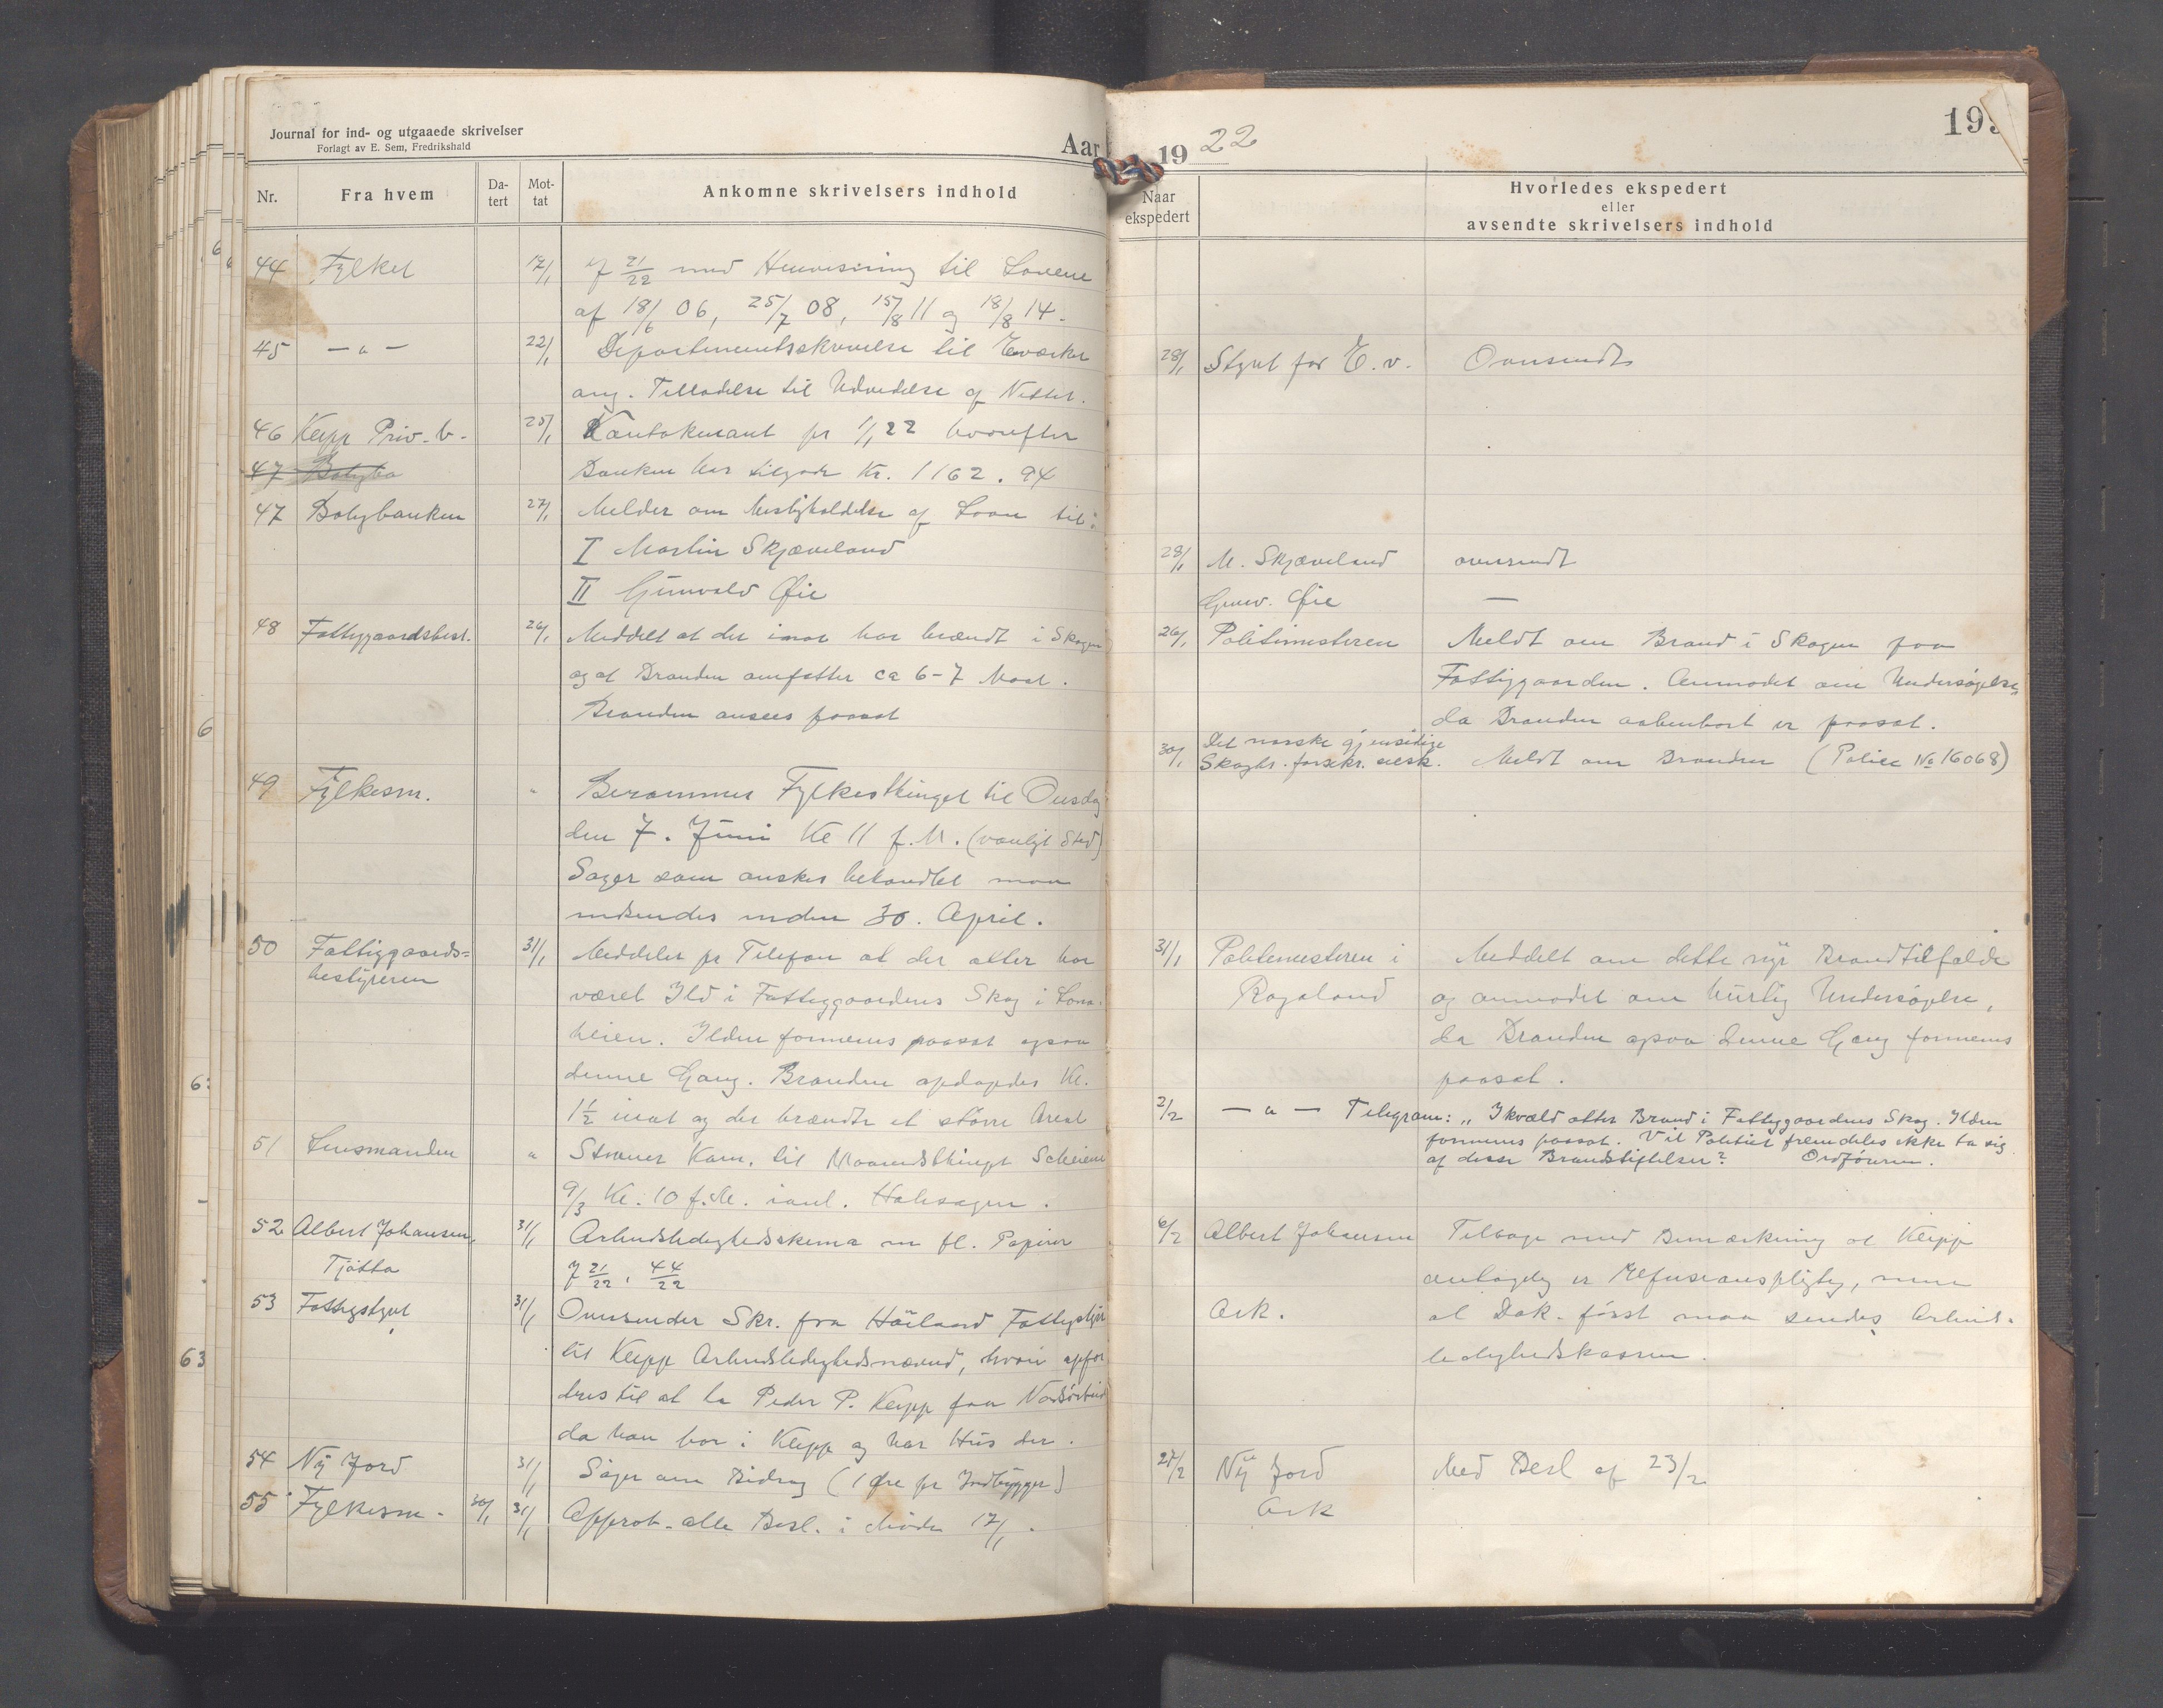 Journal for ind- og utgaaede skrivelser
Forlagt av E. Sem, Fredrikshald
Aar
Nr.
Fra hvem
Da-
tert
Mot-
tat
Ankomne skrivelsers indhold
44 Fylket 17/1 J 21/22 med Henvisning til Lovene
af 18/6 06, 25/7 08, 15/8 11 og 18/8 14.
45 — " — 22/1 Departementsskrivelse til Everket
ang. Tilladelse til Udvidelse af Nettet.
46 Klepp Priv. b. 25/1 Kontokurant pr 1/1 22 hvorefter
47 Boligba
Banken har tilgode Kr. 1162.94
47 Boligbanken 27/1 Melder om Misligholdelse af Laan til:
I Martin Skjæveland
II Gunvald Øie
48 Fattiggaardsbest. 26/1 Meddelt at der inat har brændt i Skogen
og at Branden omfatter ca 6-7 Maal.
Branden ansees paasat
49 Fylkesm. " Berammer Fylkesthinget til Onsdag
den 7. Juni Kl 11 f. M. (vanligt Sted)
Sager som ønskes behandlet maa
indsendes inden 30. April.
50 Fattiggaards- 31/1 Meddeler pr Telefon at der atter har
bestyreren
været Ild i Fattiggaardens Skog i Lona-
heien. Ilden formenes paasat ogsaa
denne Gang. Branden opdagedes Kl.
1½ inat og der brændte et større Areal
51 Lensmanden " Stævner Kom. til Maanedsthinget
9/3 Kl. 10 f. M. i anl.
52 Albert Johansen, 31/1 Arbeidsledighedsskema m fl. Papirer
Tjøtta
J 21/22, 44/22
53 Fattigstyret 31/1 Oversender Skr. fra Høiland Fattigstyre
til Klepp Arbeidsledighedsnævnd, hvori opfor
dres til at ta Peder P. Klepp paa Nødsarbeid
da han bor i Klepp og har Hus der.
54 Ny Jord 31/1 Søger om Bidrag (1 Øre pr Indbygger)
55 Fylkesm. 30/1 31/1 Approb. alle Besl. i Møde 17/1.
1922
199
Naar
ekspedert
Hvorledes ekspedert
eller
avsendte skrivelsers indhold
28/1 Styret for E. v. Oversendt
28/1 M. Skjæveland oversendt
Gunv. Øie —
26/1 Politimesteren Meldt om Brand i Skogen paa
Fattiggaarden. Anmodet om Undersøgelse,
da Branden aabenbart er paasat.
30/1 Det norske gjensidige
Skogbr. forsikr. selsk. Meldt om Branden (Police No 16068)
31/1 Politimesteren i Meddelt om dette nye Brandtilfælde
Rogaland og anmodet om hurtig Undersøgelse,
da Branden ogsaa denne Gang formenes
paasat.
2/2 — " — Telegram: „Ikvæld atter Brand i Fattiggaardens Skog. Ilden
formenes paasat. Vil Politiet fremdeles ikke ta sig
af disse Brandstiftelser? Ordføreren.
6/2 Albert Johansen Tilbage med Bemærkning at Klepp
antagelig er Refusionspligtig, men
Ark. at Dok. først maa sendes Arbeids-
ledighedskassen.
27/2 Ny Jord Med Besl af 23/2
Ark